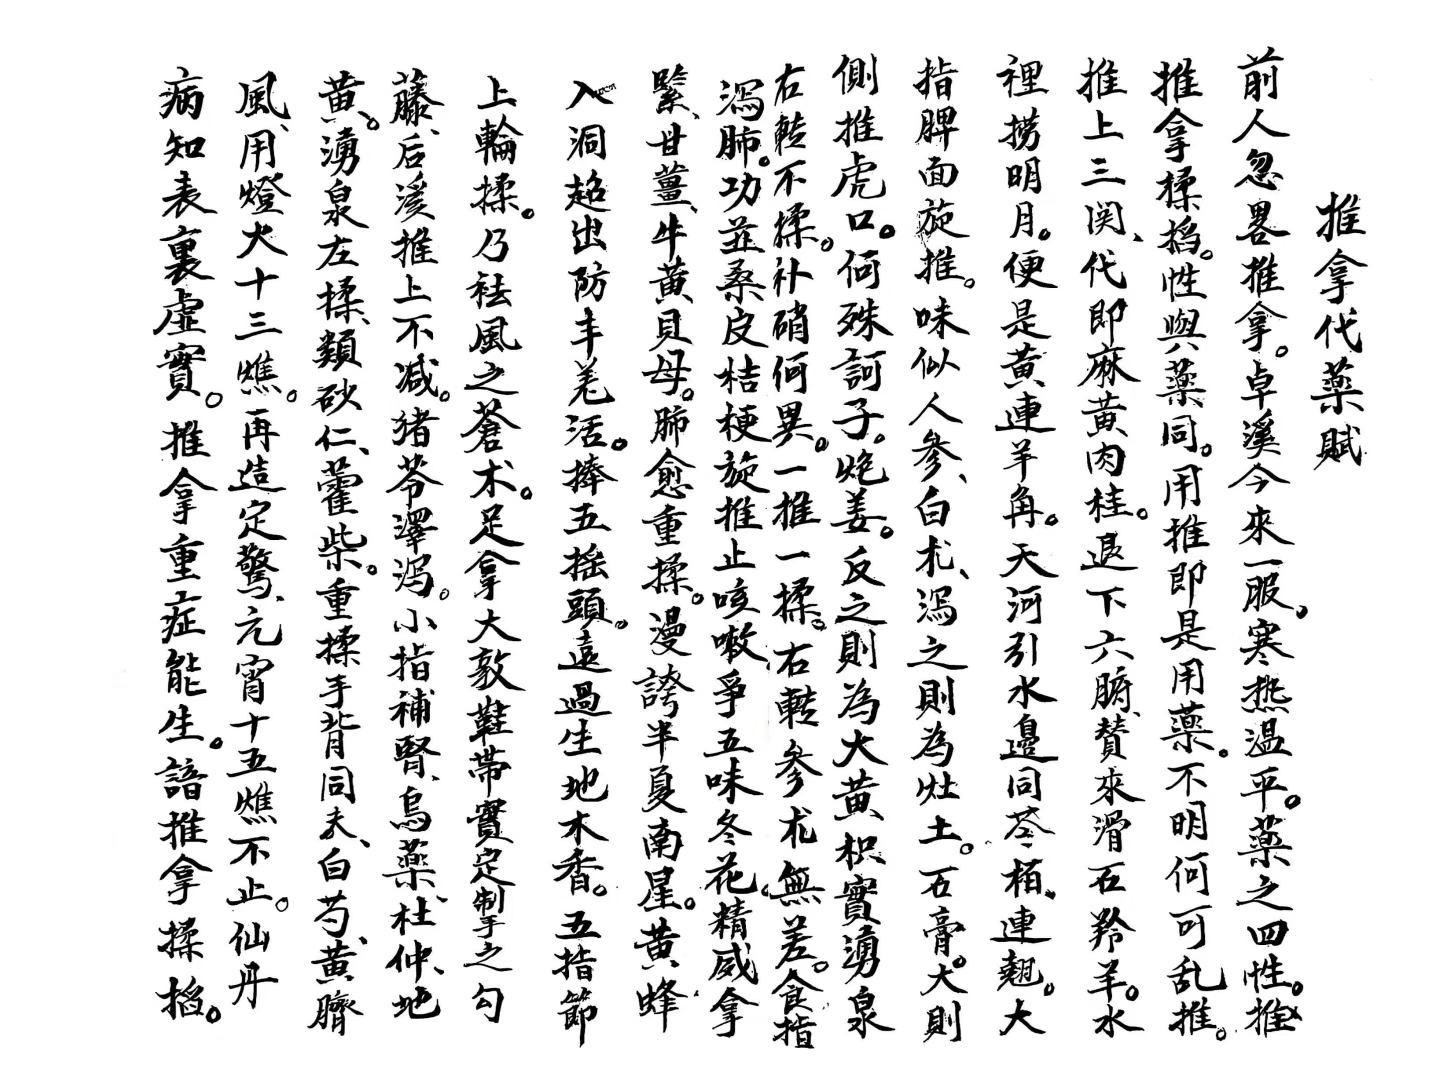 推拿代藥賦
前人忽畧推拿。卓溪今來一服。寒热温平。藥之四性。推
推拿揉掐。性與藥同。用推即是用藥。不明何可乱推。
推上三関、代即麻黄肉桂。退下六腑、賛來滑石羚羊。水
裡捞明月。便是黄連羊角。天河引水邊同芩柏、連翹。大
指脾面旋推。味似人參、白朮、瀉之則為灶土。石膏。大則
側推虎口。何殊訶子。炮姜。反之則為大黄枳實湧泉
右轉不揉。补硝何異。一推一揉。右轉參朮無差。食指
瀉肺。功並桑皮桔梗旋推止咳嗽爭五味冬花。精威拿
緊、甘薑、牛黄貝母。肺愈重揉。漫誇半夏南星。黄蜂
入洞超出防丰羌活。捧五摇頭。遠過生地木香。五指節
上輪揉。乃祛風之蒼术。足拿大敦鞋帶實定制手之勾
藤、后溪推上不减。猪苓澤瀉。小指補腎、烏藥、杜仲、地
黄。湧泉左揉、類砂仁、藿柴。重揉手背同夫、白芍、黄臍
風、用燈火十三燋。再造定驚、元宵十五燋不止。仙丹
病知表裏虛實。推拿重症能生。諳推拿揉掐。